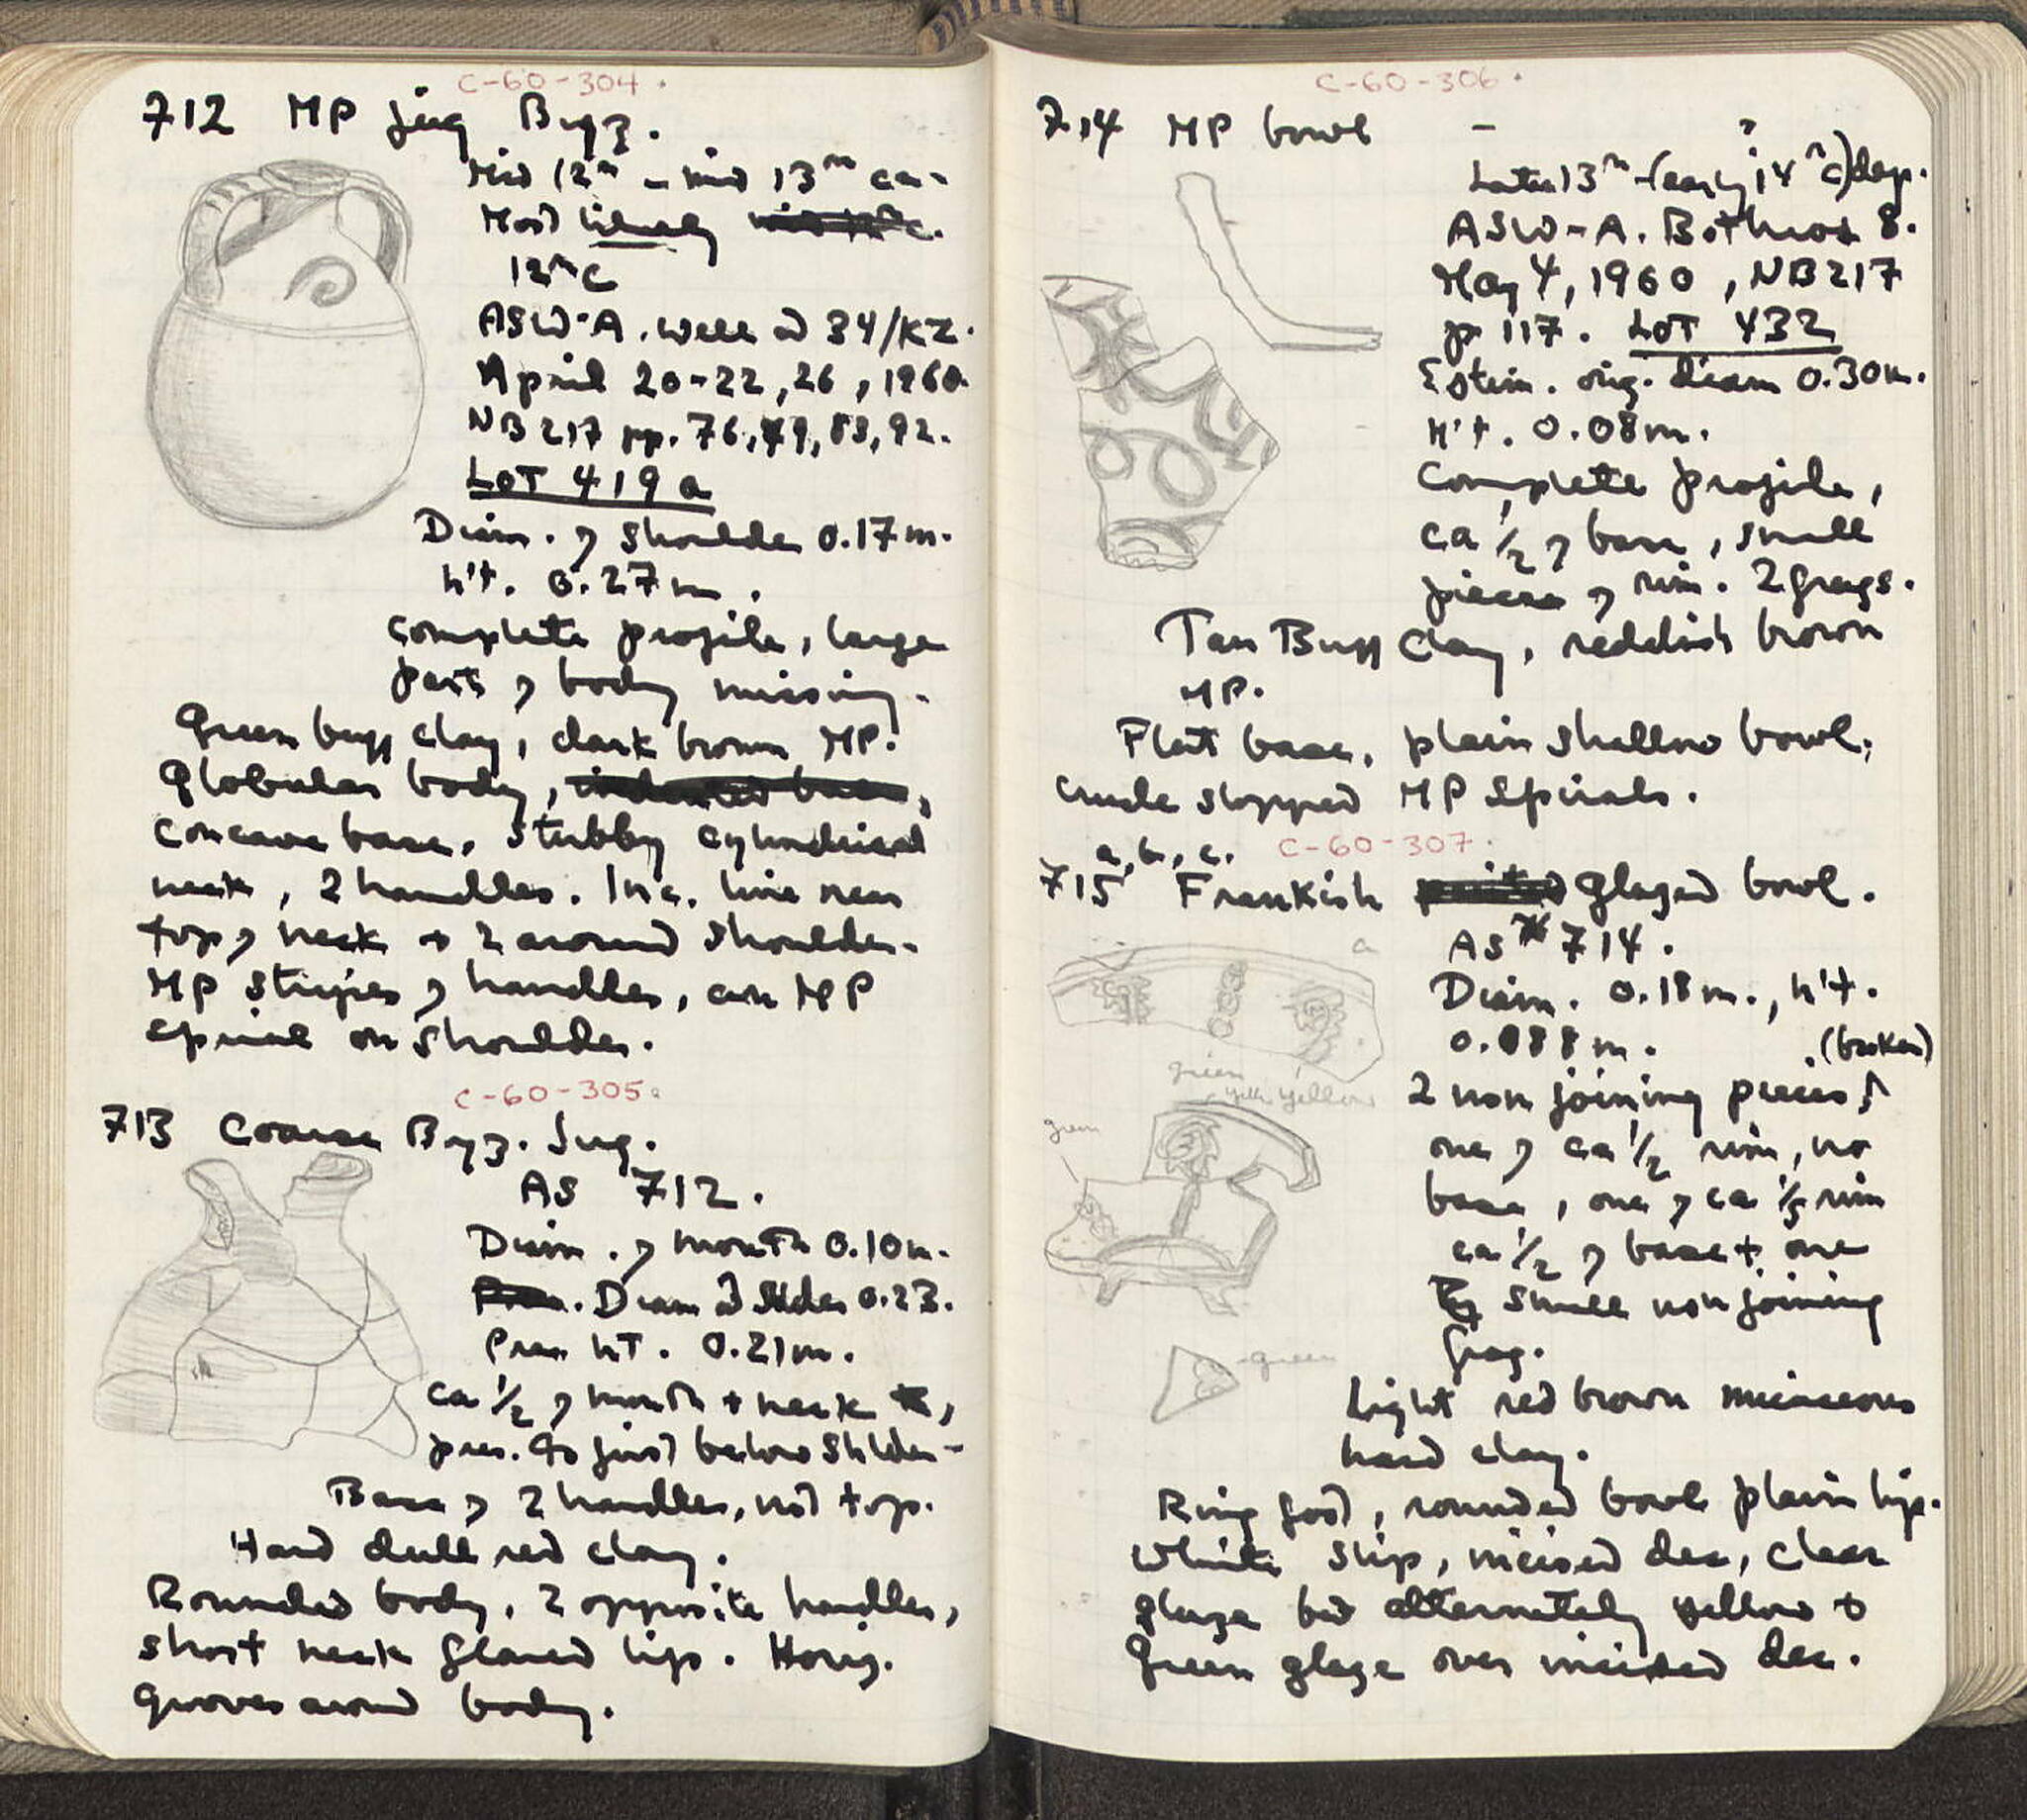 C-60-304.
712 MP jug Byz.
Mid 12th - mid 13th cen-
Most likely
12th c
ASW-A. well @ 34/KZ.
April 20-22, 26, 1960.
NB 217 pp. 76, 79, 83, 92.
LOT 419a
Diam. of shoulder 0.17 m.
h't. 0.27 m.
complete profile, large
part of body missing.
Green buff clay, dark brown MP.
Globular body, indented base,
concave base. Stubby cylindrical
neck, 2 handles. Inc. line near
top of neck + 2 around shoulder.
MP stripes of handles, an MP
spiral on shoulder.
C-60-305.
713 Coarse Byz. Jug.
AS 712.
Diam. of mouth 0.10 m.
Diam @ Shlder 0.23.
Pres ht. 0.21 m.
ca 1/2 of mouth + neck,
pres. to just below Shlder-
Base of 2 handles, not top.
Hard dull red clay.
Rounded body, 2 opposite handles,
short neck flared lip. Horiz.
grooves around body.
C-60-306.
714 MP bowl -
Later 13th - (early ? 14th c) dep.
ASW-A. Bothros 8.
May 4, 1960, NB 217
p 117. LOT 432
Estim. orig. diam 0.30 m.
h't. 0.08 m.
Complete profile,
ca 1/2 of base, small
piece of rim. 2 frags.
Tan Buff clay, reddish brown
MP.
Flat base, plain shallow bowl,
crude slopped MP spirals.
C-60-307.
715 a, b, c. Frankish glazed bowl.
AS # 714.
a
Diam. 0.18 m., h't.
0.088 m.
(broken)
2 non joining pieces
one of ca 1/2 rim, no
base, one of ca 1/3 rim
ca 1/2 of base + one
small non joining
frag.
green
yellow
green
green
Light red brown micaceous
hard clay.
Ring foot, rounded bowl plain lip.
White slip, incised dec, clear
glaze but alternately yellow +
green glaze over incised dec.